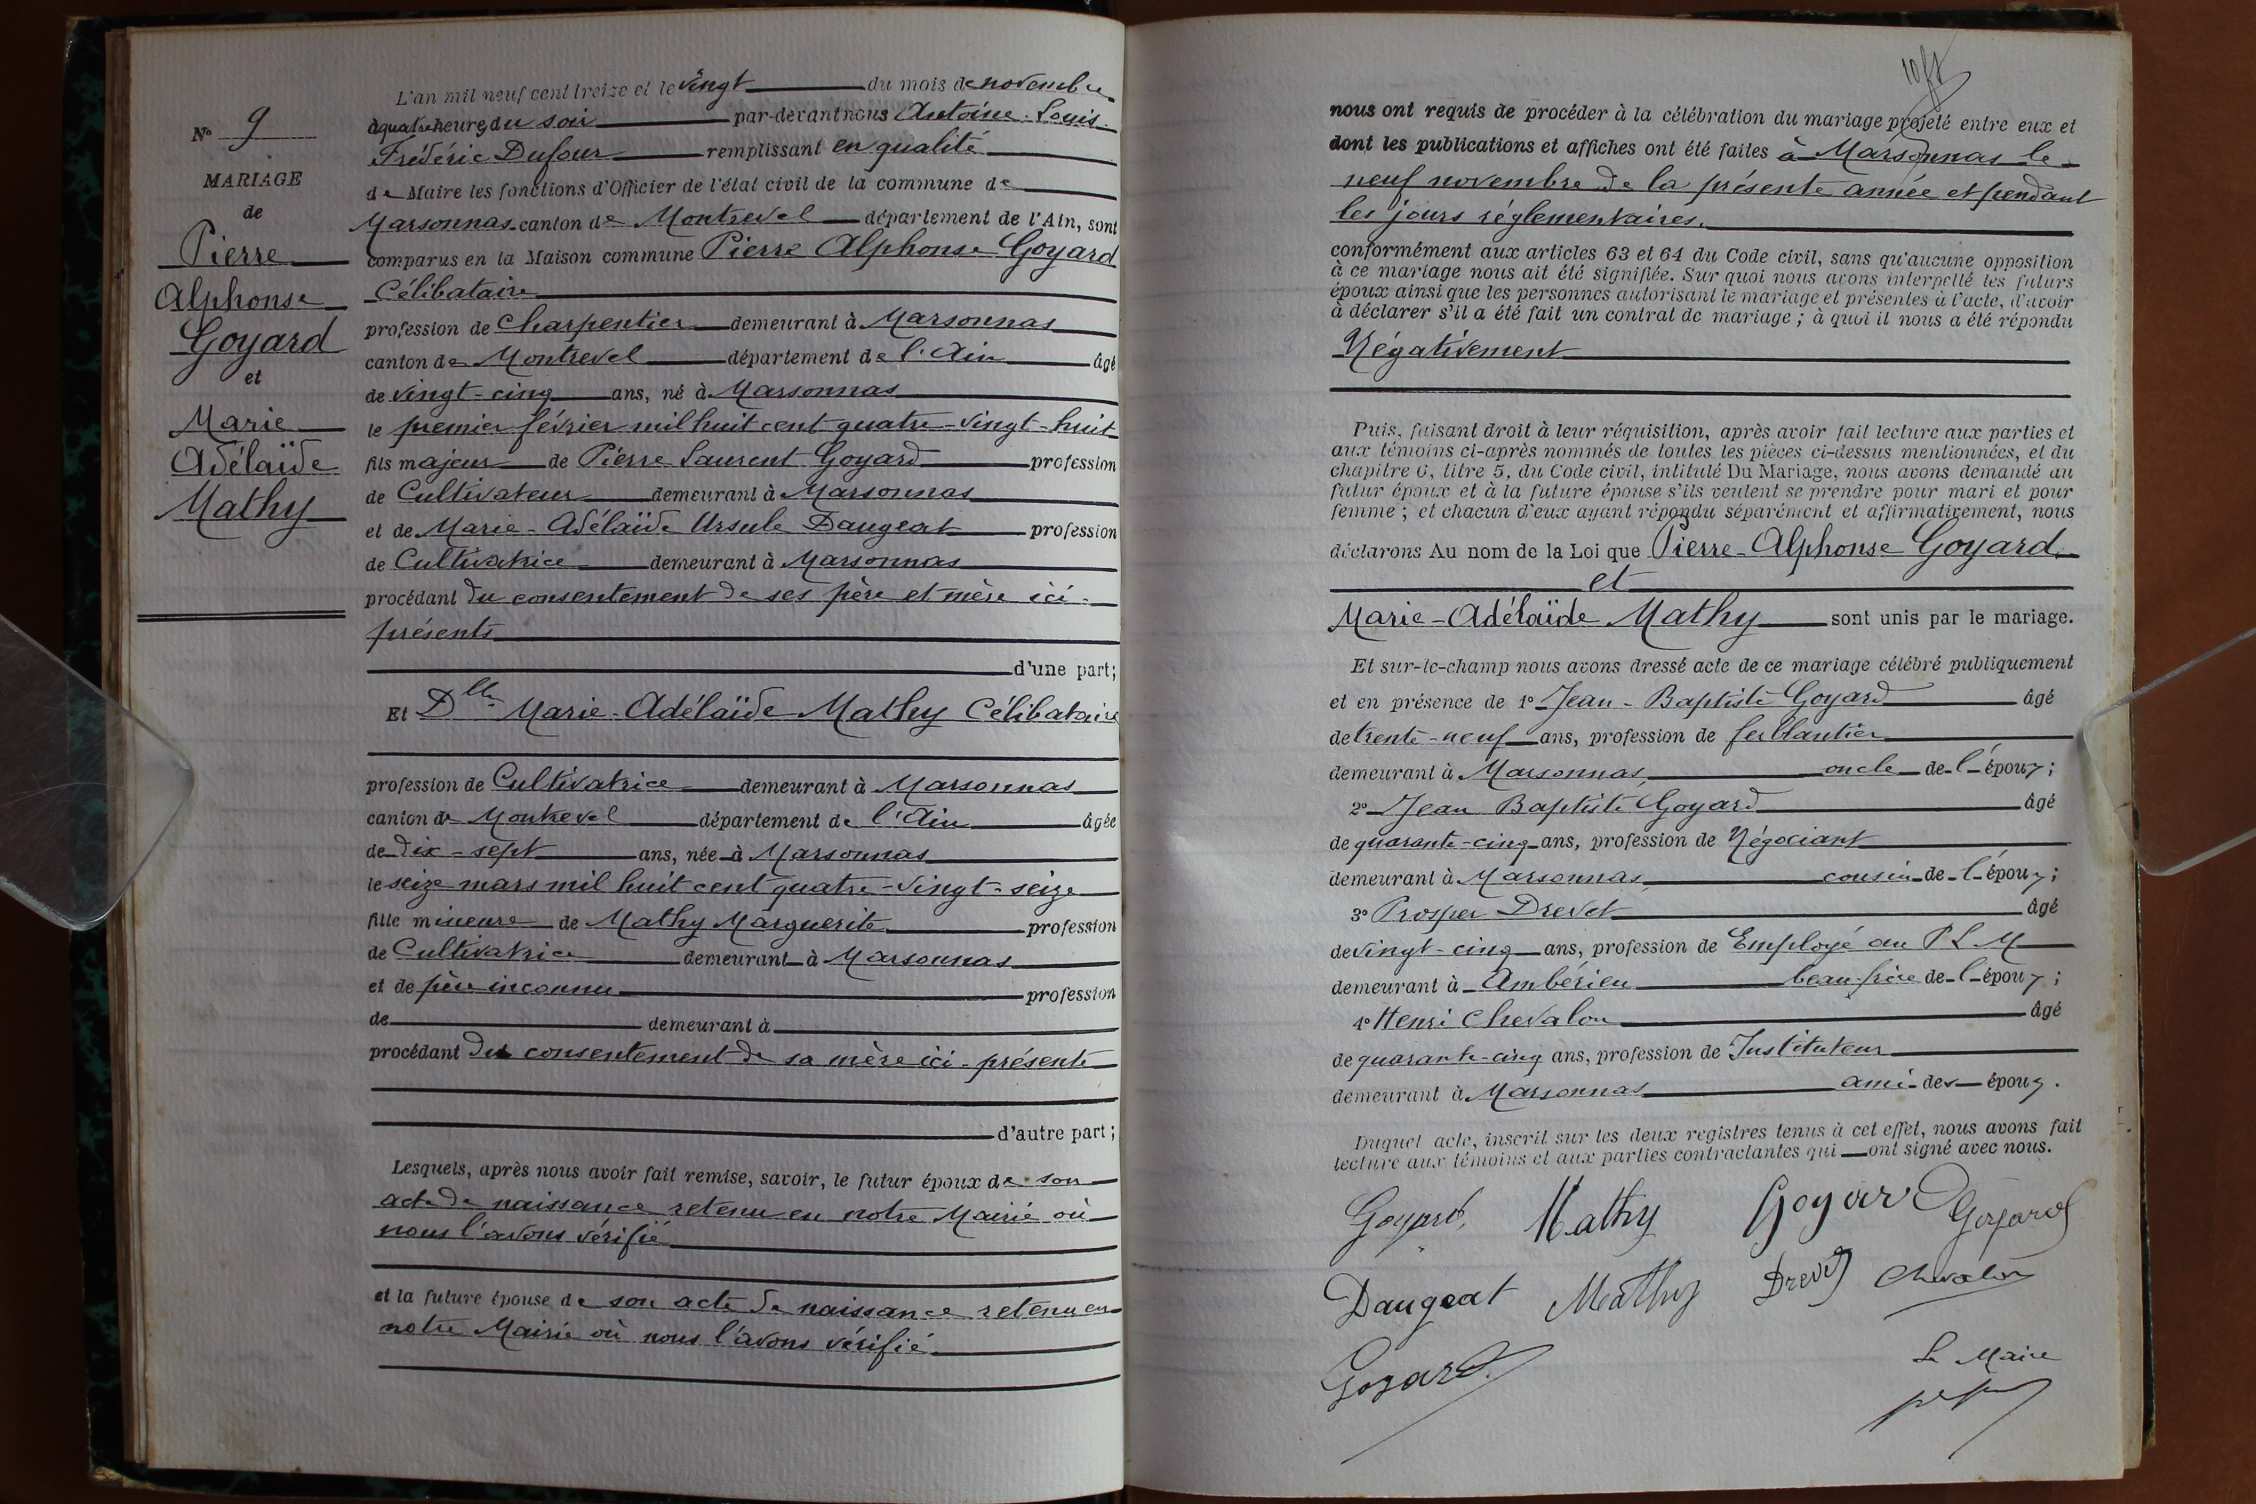 N° 9
MARIAGE
de
Pierre
Alphonse
Goyard
et
Marie
Adélaïde
Mathy
L'an mil neuf cent treize et le vingt du mois de novembre
à quatre heures du soir par-devant nous Antoine-Louis-
Frédéric Dufour remplissant en qualité
de Maire les fonctions d'Officier de l'état civil de la commune de
Marsonnas canton de Montrevel département de l'Ain, sont
comparus en la Maison commune Pierre Alphonse Goyard
Célibataire
profession de Charpentier demeurant à Marsonnas
canton de Montrevel département de l'Ain âgé
de vingt-cinq ans, né à Marsonnas
le premier février mil huit cent quatre-vingt-huit
fils majeur de Pierre Laurent Goyard profession
de Cultivateur demeurant à Marsonnas
et de Marie-Adélaïde Ursule Daugeat profession
de Cultivatrice demeurant à Marsonnas
procédant du consentement de ses père et mère ici-
présents
d'une part;
Et Dlle Marie-Adélaïde Mathy Célibataire
profession de Cultivatrice demeurant à Marsonnas
canton de Montrevel département de l'Ain âgée
de dix-sept ans, née à Marsonnas
le seize mars mil huit cent quatre-vingt-seize
fille mineure de Mathy Marguerite profession
de Cultivatrice demeurant à Marsonnas
et de père inconnu profession
de demeurant à
procédant du consentement de sa mère ici-présente
d'autre part;
Lesquels, après nous avoir fait remise, savoir, le futur époux de son
acte de naissance retenu en notre Mairie où
nous l'avons vérifié
et la future épouse de son acte de naissance retenu en
notre Mairie où nous l'avons vérifié.
nous ont requis de procéder à la célébration du mariage projeté entre eux et
dont les publications et affiches ont été faites à Marsonnas le
neuf novembre de la présente année et pendant
les jours réglementaires.
conformément aux articles 63 et 64 du Code civil, sans qu'aucune opposition
à ce mariage nous ait été signifiée. Sur quoi nous avons interpellé les futurs
époux ainsi que les personnes autorisant le mariage et présentes à l'acte, d'avoir
à déclarer s'il a été fait un contrat de mariage; à quoi il nous a été répondu
Négativement
Puis, faisant droit à leur réquisition, après avoir fait lecture aux parties et
aux témoins ci-après nommés de toutes les pièces ci-dessus mentionnées, et du
chapitre 6, titre 5, du Code civil, intitulé Du Mariage, nous avons demandé au
futur époux et à la future épouse s'ils veulent se prendre pour mari et pour
femme; et chacun d'eux ayant répondu séparément et affirmativement, nous
déclarons Au nom de la Loi que Pierre-Alphonse Goyard
et
Marie-Adélaïde Mathy sont unis par le mariage.
Et sur-le-champ nous avons dressé acte de ce mariage célébré publiquement
et en présence de 1° Jean-Baptiste Goyard âgé
de trente-neuf ans, profession de ferblantier
demeurant à Marsonnas oncle de l'époux;
2° Jean Baptiste Goyard âgé
de quarante-cinq ans, profession de Négociant
demeurant à Marsonnas cousin de l'époux;
3° Prosper Drevet âgé
de vingt-cinq ans, profession de Employé au P L M
demeurant à Ambérieu beau-frère de l'époux;
4° Henri Chevalon âgé
de quarante-cinq ans, profession de Instituteur
demeurant à Marsonnas ami des époux.
Duquel acte, inscrit sur les deux registres tenus à cet effet, nous avons fait
lecture aux témoins et aux parties contractantes qui ont signé avec nous.
Goyard Mathy Goyard Goyard
Daugeat Mathy Drevet Chevalon
Goyard
Le Maire